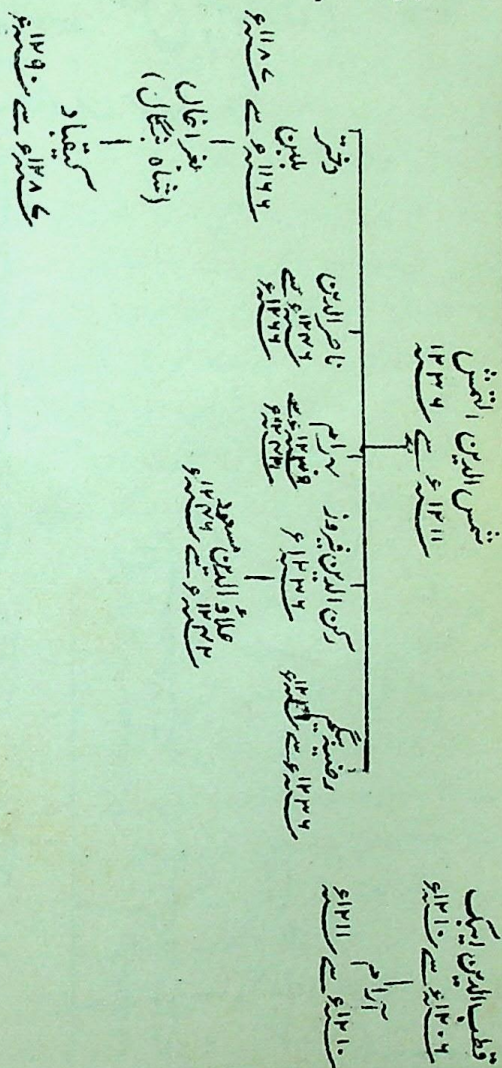 قطب الدین ایبک
۱۲۰۶ء سے ۱۲۱۰ء
آرام
۱۲۱۰ء سے ۱۲۱۱ء
شمس الدین التمش
۱۲۱۱ء سے ۱۲۳۶
رضیہ بیگم
۱۲۳۶ء سے
رکن الدین فیروز
۱۲۳۶ء
علاؤ الدین مسعود
۱۲۴۲ء سے ۱۲۴۶ء
بہرام
ناصر الدین
۱۲۴۶ء سے
۱۲۶۶ء
دختر
بلبن
۱۱۶۶ء سے ۱۱۸۷ء
بغرا خاں
(شاہ بنگال)
کیقباد
۱۲۸۷ء سے ۱۲۹۰ء